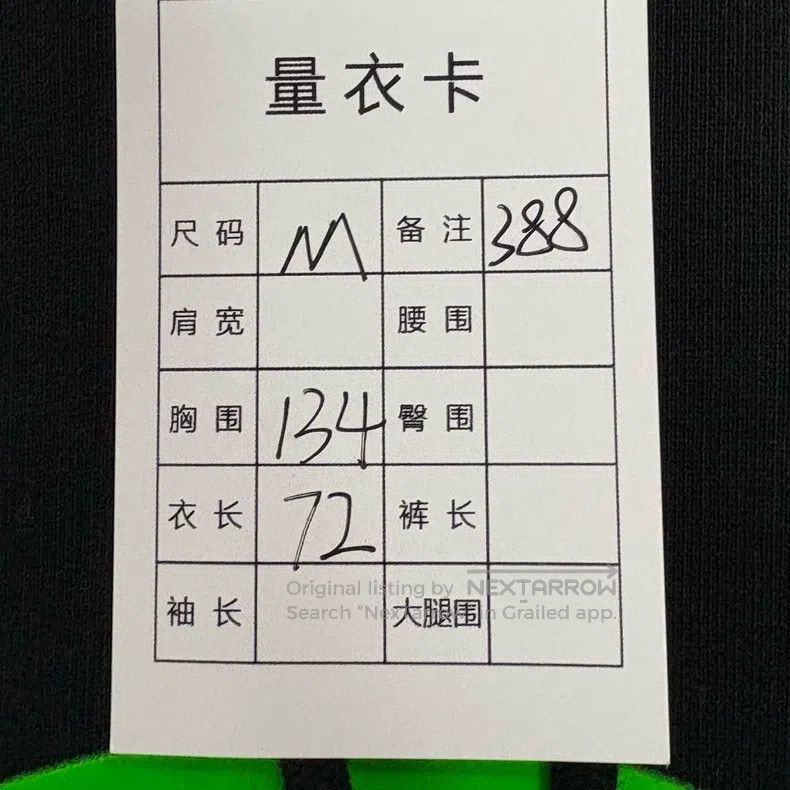 量衣卡
尺码 M 备注 388
肩宽 腰围
胸围 134 臀围
衣长 72 裤长
Original listing by NEXTARROW
Search "Nextarrow" in Grailed app.
袖长 大腿围